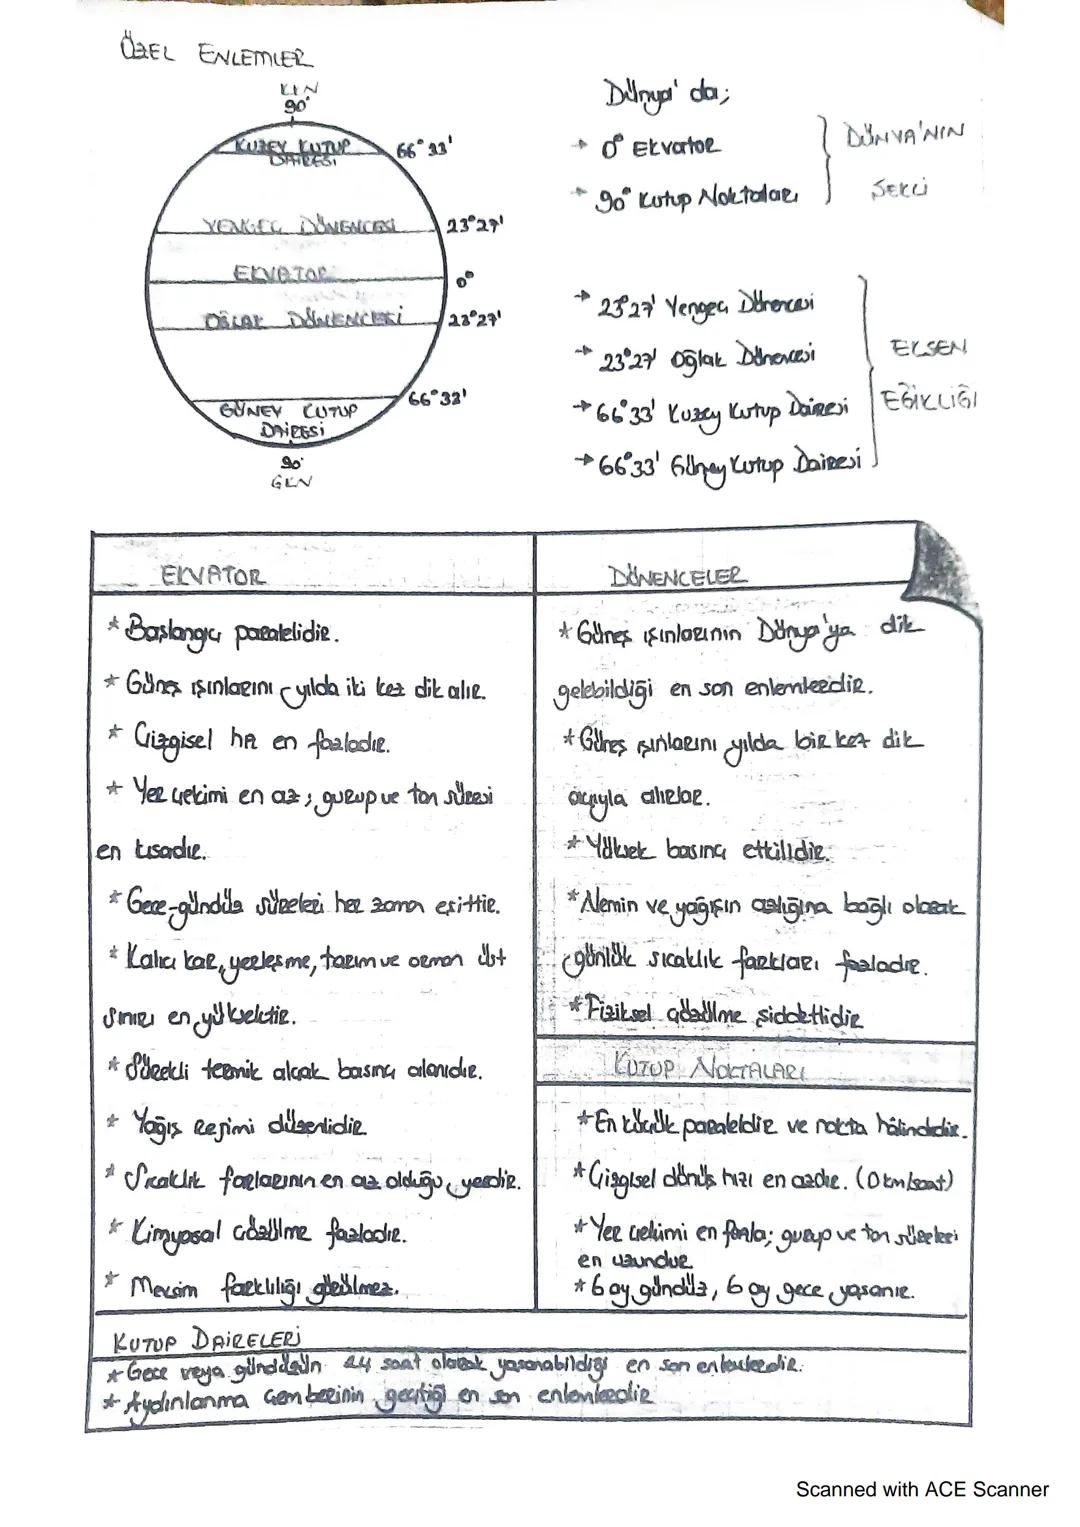 ÖZEL ENLEMLER
KKN
90°
KUZEY KUTUP DAİRESİ
66° 33'
YENGEÇ DÖNENCESİ
23°27'
EKVATOR
0°
OĞLAK DÖNENCESİ
23°27'
66°33'
GÜNEY KUTUP
DAİRESİ
90°
GKN
Dünya' da;
→ 0° Ekvator
→ 90° Kutup Noktaları
DÜNYA'NIN
ŞEKLİ
→ 23°27' Yengeç Dönencesi
→ 23°27' Oğlak Dönencesi
→ 66°33' Kuzey Kutup Dairesi
→ 66°33' Güney Kutup Dairesi
EKSEN
EĞİKLİĞİ
EKVATOR
* Başlangıç paralelidir.
* Güneş ışınlarını yılda iki kez dik alır.
* Çizgisel hız en fazladır.
* Yer çekimi en az; gurup ve tan süresi
en kısadır.
* Gece-gündüz süreleri her zaman eşittir.
* Kalıcı kar, yerleşme, tarım ve orman üst
sınırı en yüksektir.
* Sürekli termik alçak basınç alanıdır.
* Yağış rejimi düzenlidir
* Sıcaklık farlarının en az olduğu yerdir.
* Kimyasal çözülme fazladır.
* Mevsim farklılığı görülmez.
DÖNENCELER
* Güneş ışınlarının Dünya'ya dik
gelebildiği en son enlemlerdir.
* Güneş ışınlarını yılda bir kez dik
açıyla alırlar.
* Yüksek basınç etkilidir.
* Nemin ve yağışın azlığına bağlı olarak
günlük sıcaklık farkları fazladır.
* Fiziksel çözülme şiddetlidir
KUTUP NOKTALARI
* En küçük paraleldir ve nokta hâlindedir.
* Çizgisel dönüş hızı en azdır. (0 km/saat)
* Yer çekimi en fazla; gurup ve tan süreleri
en uzundur
* 6 ay gündüz, 6 ay gece yaşanır.
KUTUP DAİRELERİ
* Gece veya gündüzün 24 saat olarak yaşanabildiği en son enlemlerdir.
* Aydınlanma çemberinin geçtiği en son enlemlerdir
Scanned with ACE Scanner